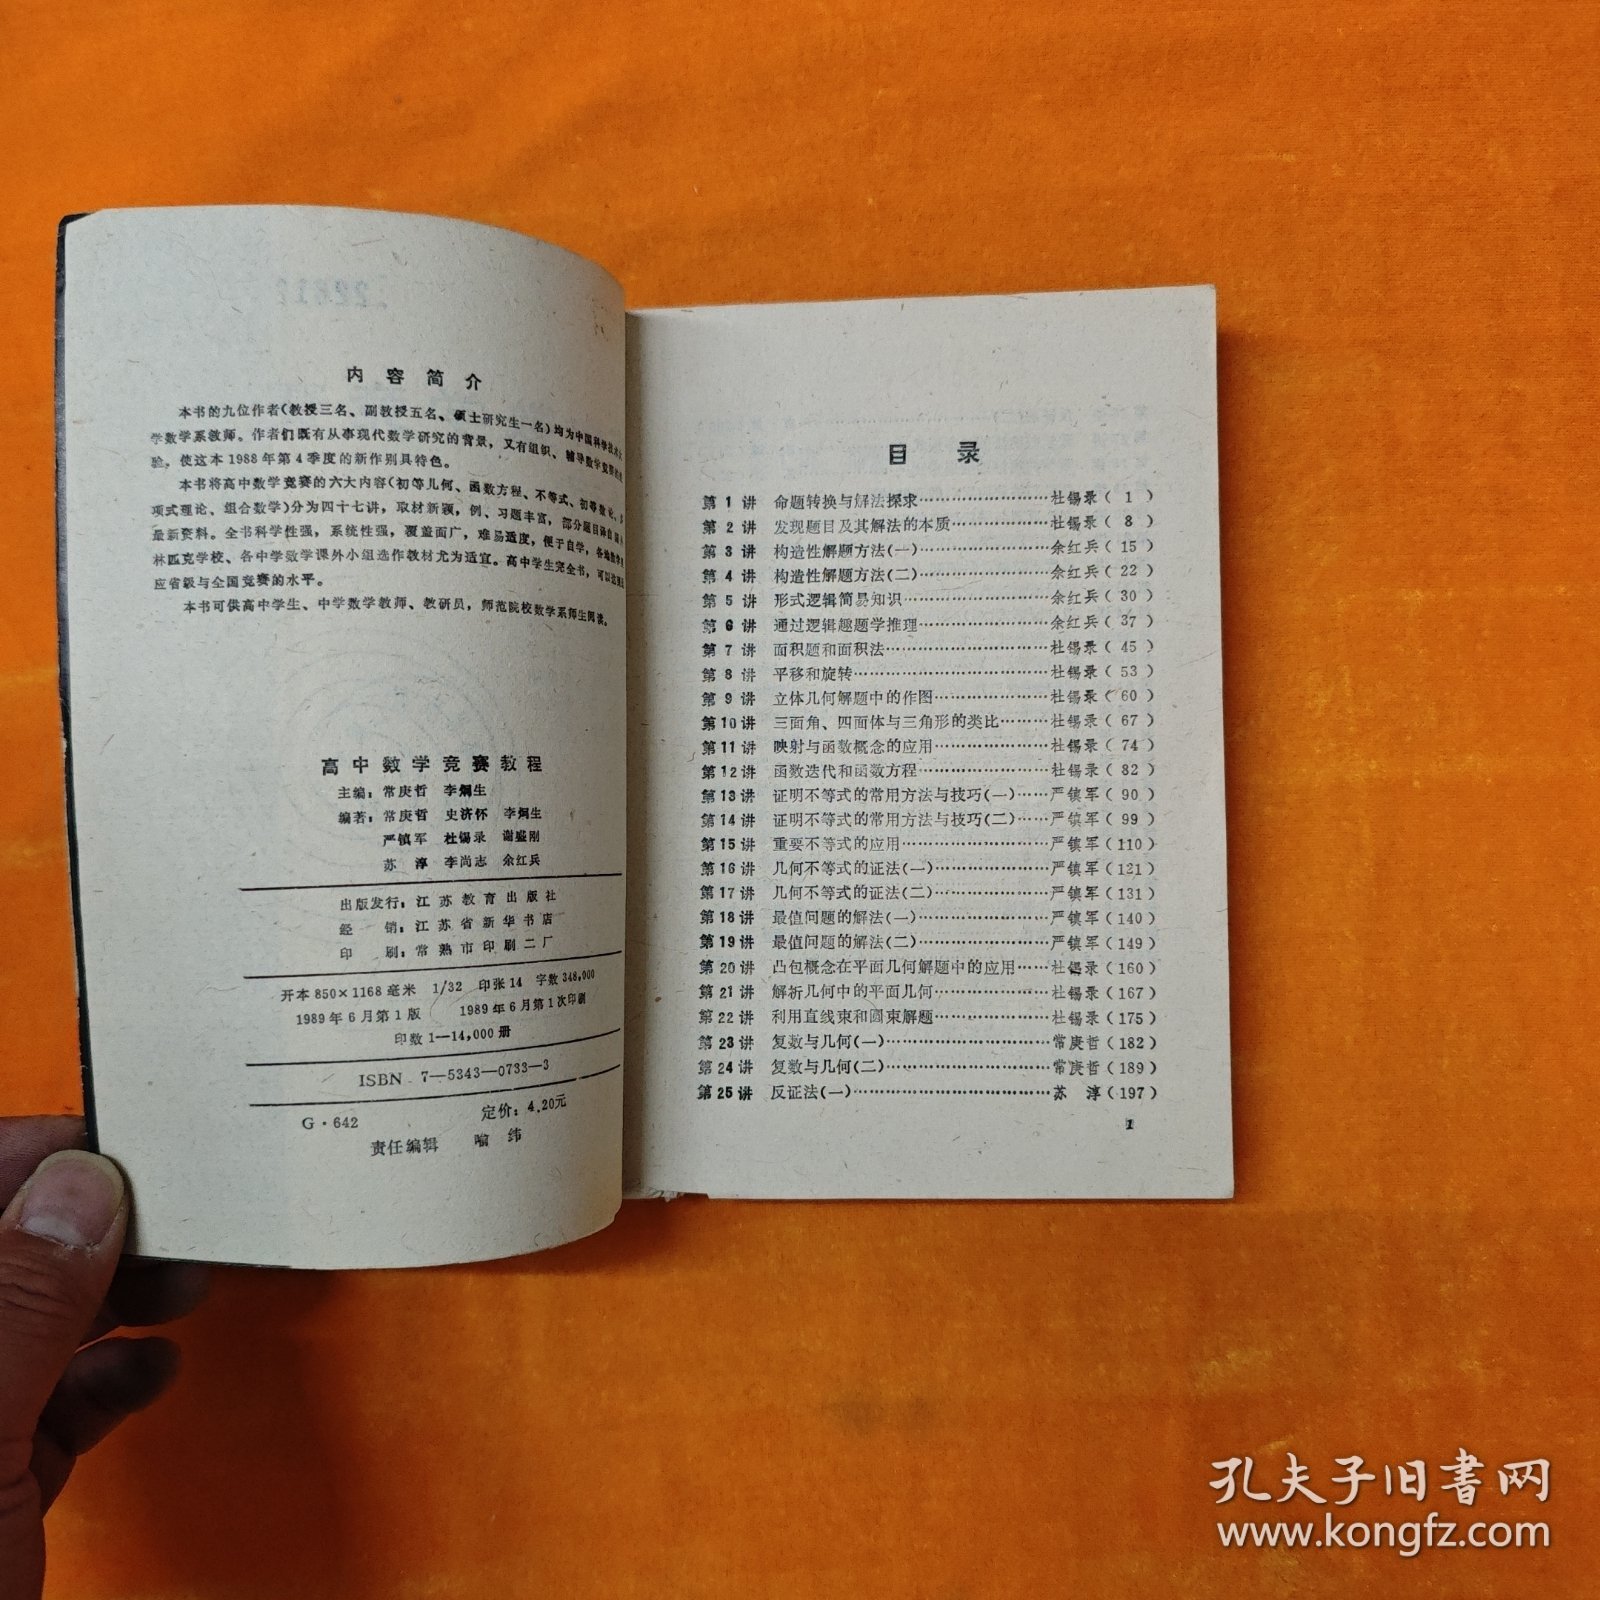 内容简介
本书的九位作者(教授三名、副教授五名、硕士研究生一名)均为中国科学技术
学数学系教师。作者们既有从事现代数学研究的背景，又有组织、辅导数学竞赛的
验，使这本1988年第4季度的新作别具特色。
本书将高中数学竞赛的六大内容(初等几何、函数方程、不等式、初等数论、
项式理论、组合数学)分为四十七讲，取材新颖，例、习题丰富，部分题目译自
最新资料。全书科学性强，系统性强，覆盖面广，难易适度，便于自学，各地数学
林匹克学校、各中学数学课外小组选作教材尤为适宜。高中学生学完全书，可以
应省级与全国竞赛的水平。
本书可供高中学生、中学数学教师、教研员，师范院校数学系师生阅读。
高中数学竞赛教程
主编：常庚哲 李炯生
编著：常庚哲 史济怀 李炯生
严镇军 杜锡录 谢盛刚
苏淳 李尚志 余红兵
出版发行：江苏教育出版社
经销：江苏省新华书店
印刷：常熟市印刷二厂
开本850×1168毫米 1/32 印张14 字数348,000
1989年6月第1版 1989年6月第1次印刷
印数1—14,000册
ISBN 7—5343—0733—3
G·642 定价：4.20元
责任编辑 喻纬
目录
第1讲 命题转换与解法探求……………………杜锡录(1)
第2讲 发现题目及其解法的本质………………杜锡录(8)
第3讲 构造性解题方法(一)……………………余红兵(15)
第4讲 构造性解题方法(二)……………………余红兵(22)
第5讲 形式逻辑简易知识………………………余红兵(30)
第6讲 通过逻辑趣题学推理……………………余红兵(37)
第7讲 面积题和面积法…………………………杜锡录(45)
第8讲 平移和旋转………………………………杜锡录(53)
第9讲 立体几何解题中的作图…………………杜锡录(60)
第10讲 三面角、四面体与三角形的类比………杜锡录(67)
第11讲 映射与函数概念的应用…………………杜锡录(74)
第12讲 函数迭代和函数方程……………………杜锡录(82)
第13讲 证明不等式的常用方法与技巧(一)……严镇军(90)
第14讲 证明不等式的常用方法与技巧(二)……严镇军(99)
第15讲 重要不等式的应用………………………严镇军(110)
第16讲 几何不等式的证法(一)…………………严镇军(121)
第17讲 几何不等式的证法(二)…………………严镇军(131)
第18讲 最值问题的解法(一)……………………严镇军(140)
第19讲 最值问题的解法(二)……………………严镇军(149)
第20讲 凸包概念在平面几何解题中的应用……杜锡录(160)
第21讲 解析几何中的平面几何…………………杜锡录(167)
第22讲 利用直线束和圆束解题…………………杜锡录(175)
第23讲 复数与几何(一)…………………………常庚哲(182)
第24讲 复数与几何(二)…………………………常庚哲(189)
第25讲 反证法(一)………………………………苏淳(197)
1
孔夫子旧书网
www.kongfz.com